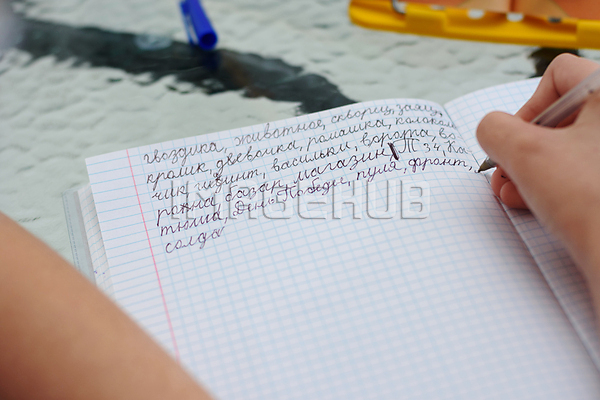 гвоздика, животное, скворец, заяц,
кролик, девочка, ромашка, колоколь
чик, индит, васильки, ворота, во
рона, базар, магазин, Т 34, Ка
тюша, День Победы, пуля, фронт,
солда
IMAGEHUB